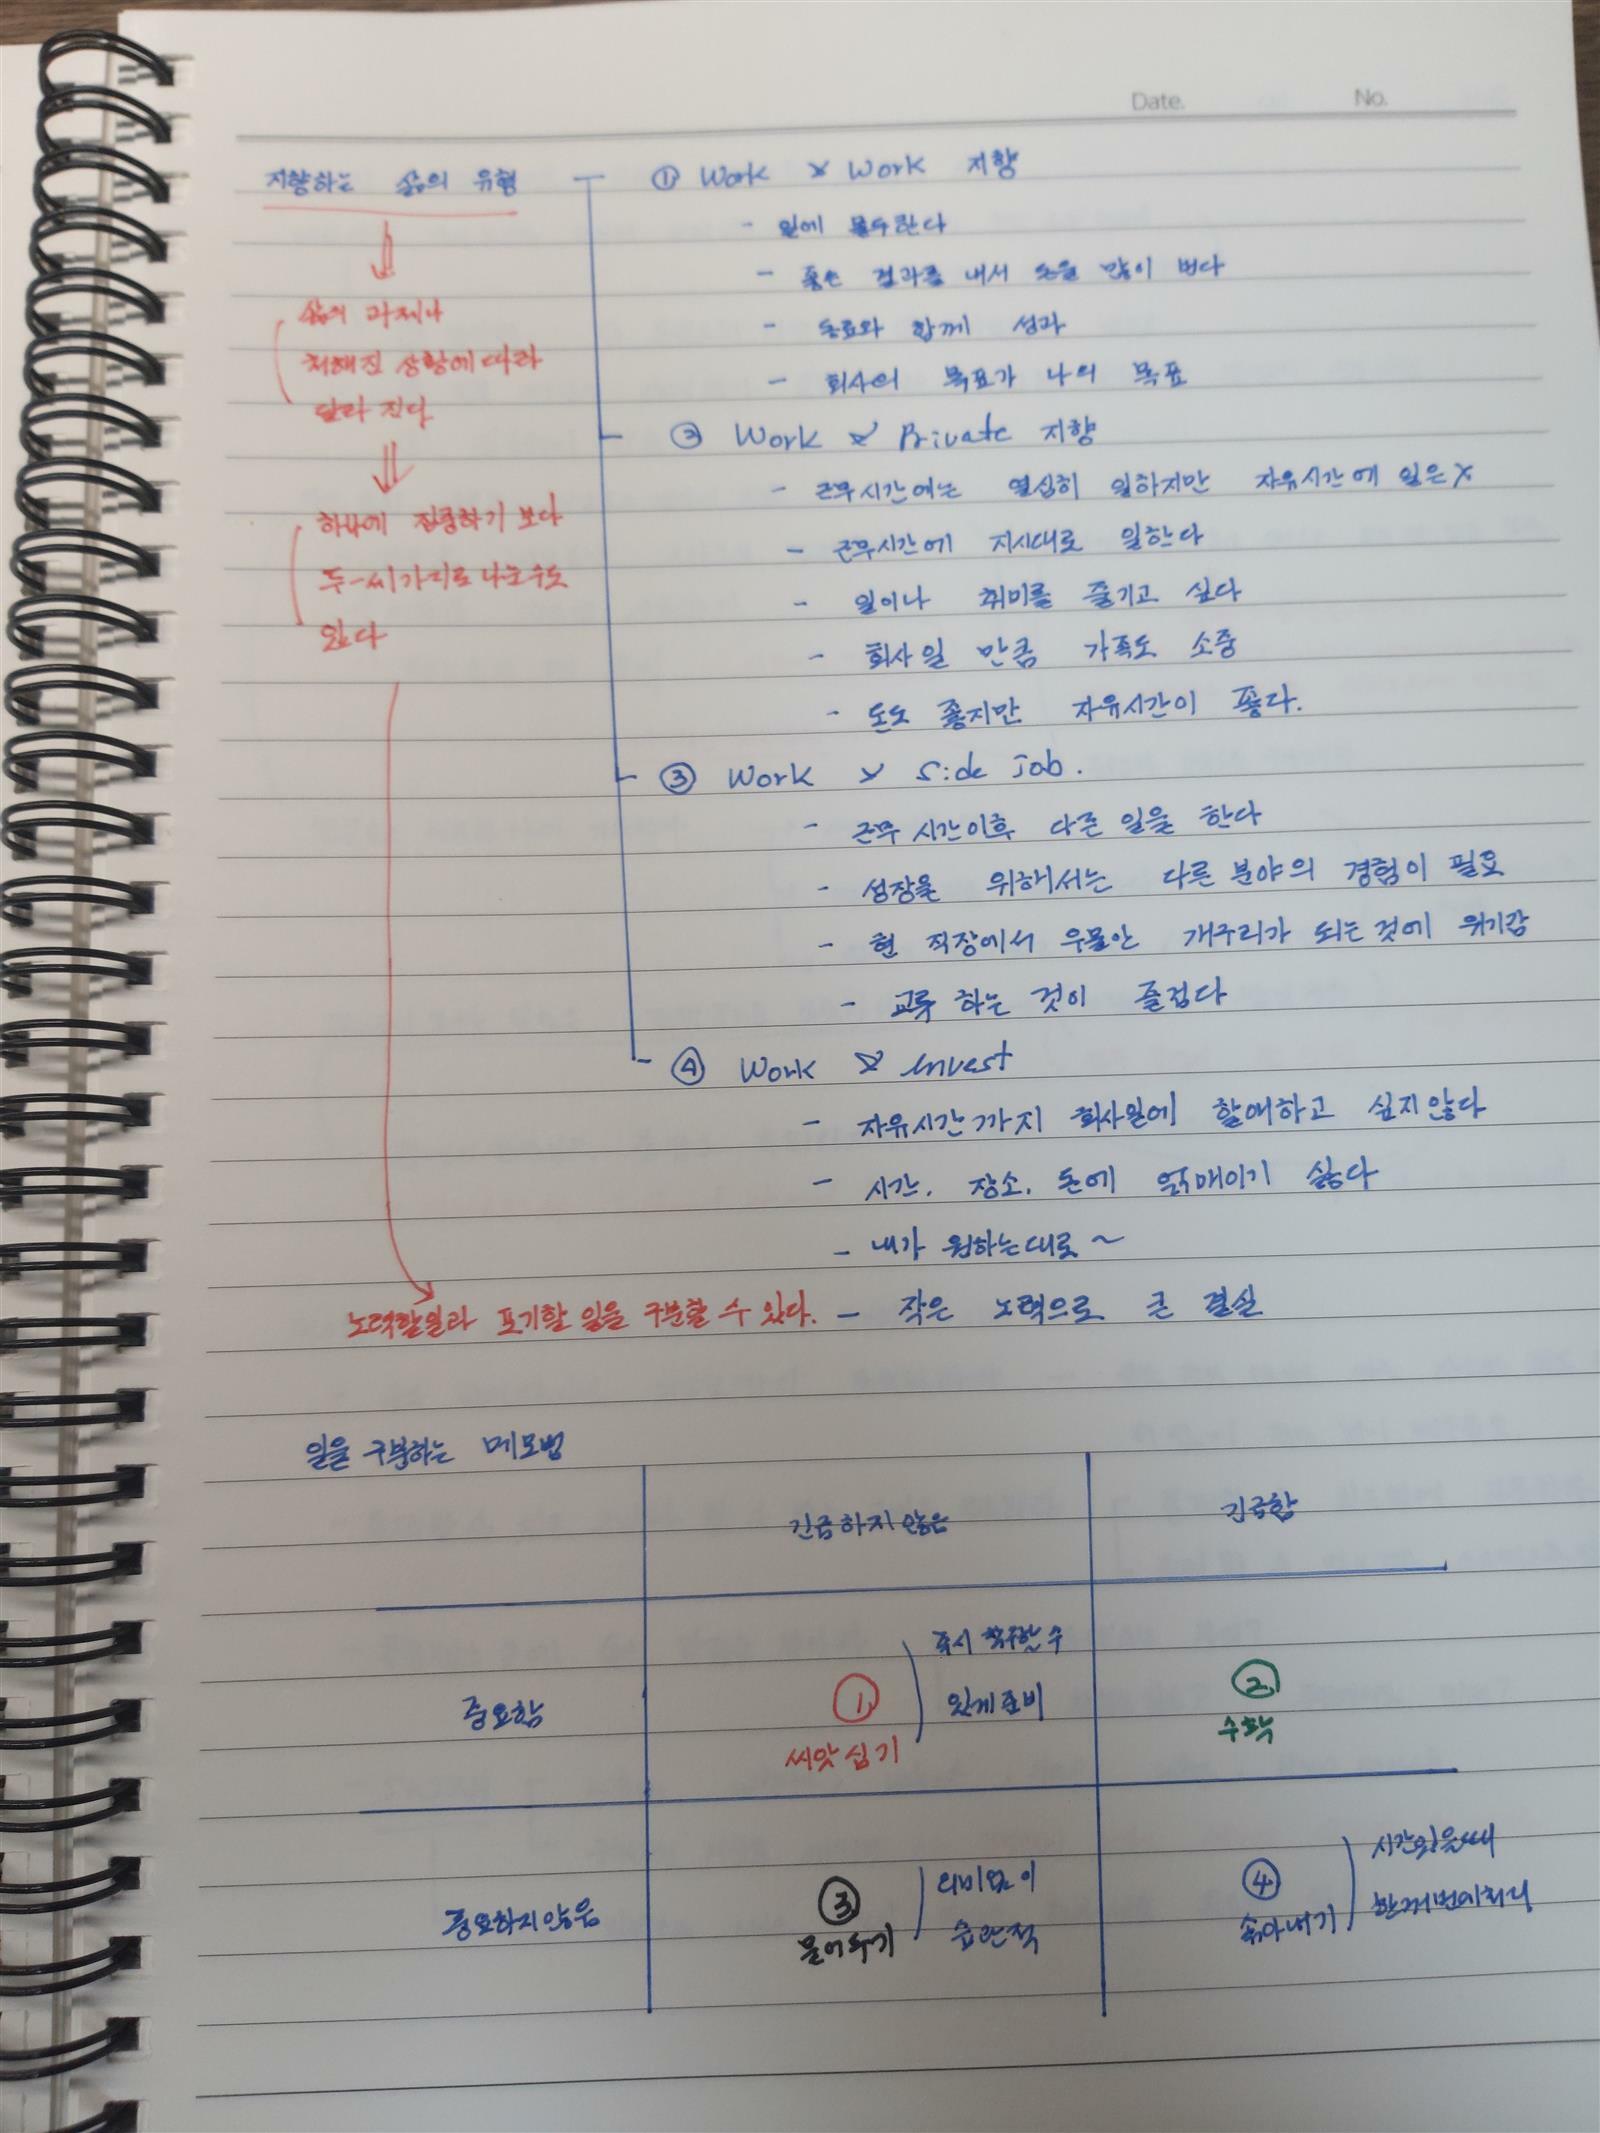 Date. No.
지향하는 삶의 유형
① Work × Work 지향
- 일에 몰두한다
- 좋은 결과를 내서 돈을 많이 번다
- 동료와 함께 성과
- 회사의 목표가 나의 목표
삶의 과제나
처해진 상황에 따라
달라 진다
하나에 집중하기 보다
두-세가지로 나눌수도
있다
② Work × Private 지향
- 근무시간에는 열심히 일하지만 자유시간에 일은 X
- 근무시간에 지시대로 일한다
- 일이나 취미를 즐기고 싶다
- 회사일 만큼 가족도 소중
- 돈도 좋지만 자유시간이 좋다.
③ Work × Side Job.
- 근무 시간이후 다른 일을 한다
- 성장을 위해서는 다른 분야의 경험이 필요
- 현 직장에서 우물안 개구리가 되는 것에 위기감
- 교류 하는 것이 즐겁다
④ Work × Invest
- 자유시간까지 회사일에 할애하고 싶지않다
- 시간, 장소, 돈에 얽매이기 싫다
- 내가 원하는대로 ~
- 작은 노력으로 큰 결실
노력할일과 포기할 일을 구분할 수 있다.
일을 구분하는 메모법
긴급하지 않음 긴급함
중요함
① 씨앗 심기
즉시 착수할 수
있게 준비
② 수확
중요하지않음
③ 묻어두기
의미없이
습관적
④ 솎아내기
시간있을때
한꺼번에처리